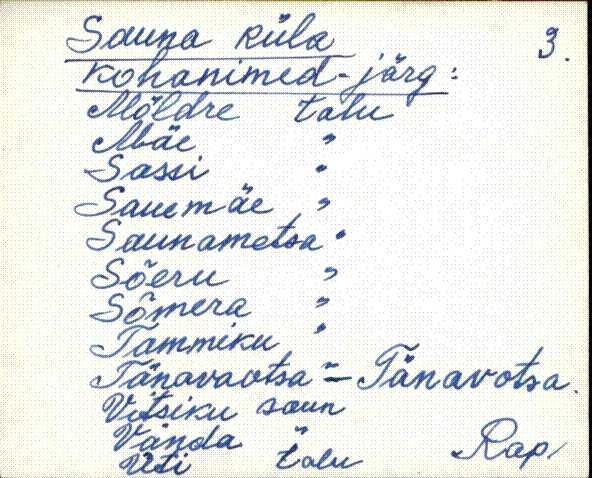 Sauna küla 3.
kohanimed-järg:
Möldre talu
Mäe "
Sassi "
Sauemäe "
Saunametsa "
Sõeru "
Sõmera "
Tammiku "
Tänavaotsa " = Tänavotsa.
Vitsiku saun
Vända "
Uti talu Rap/